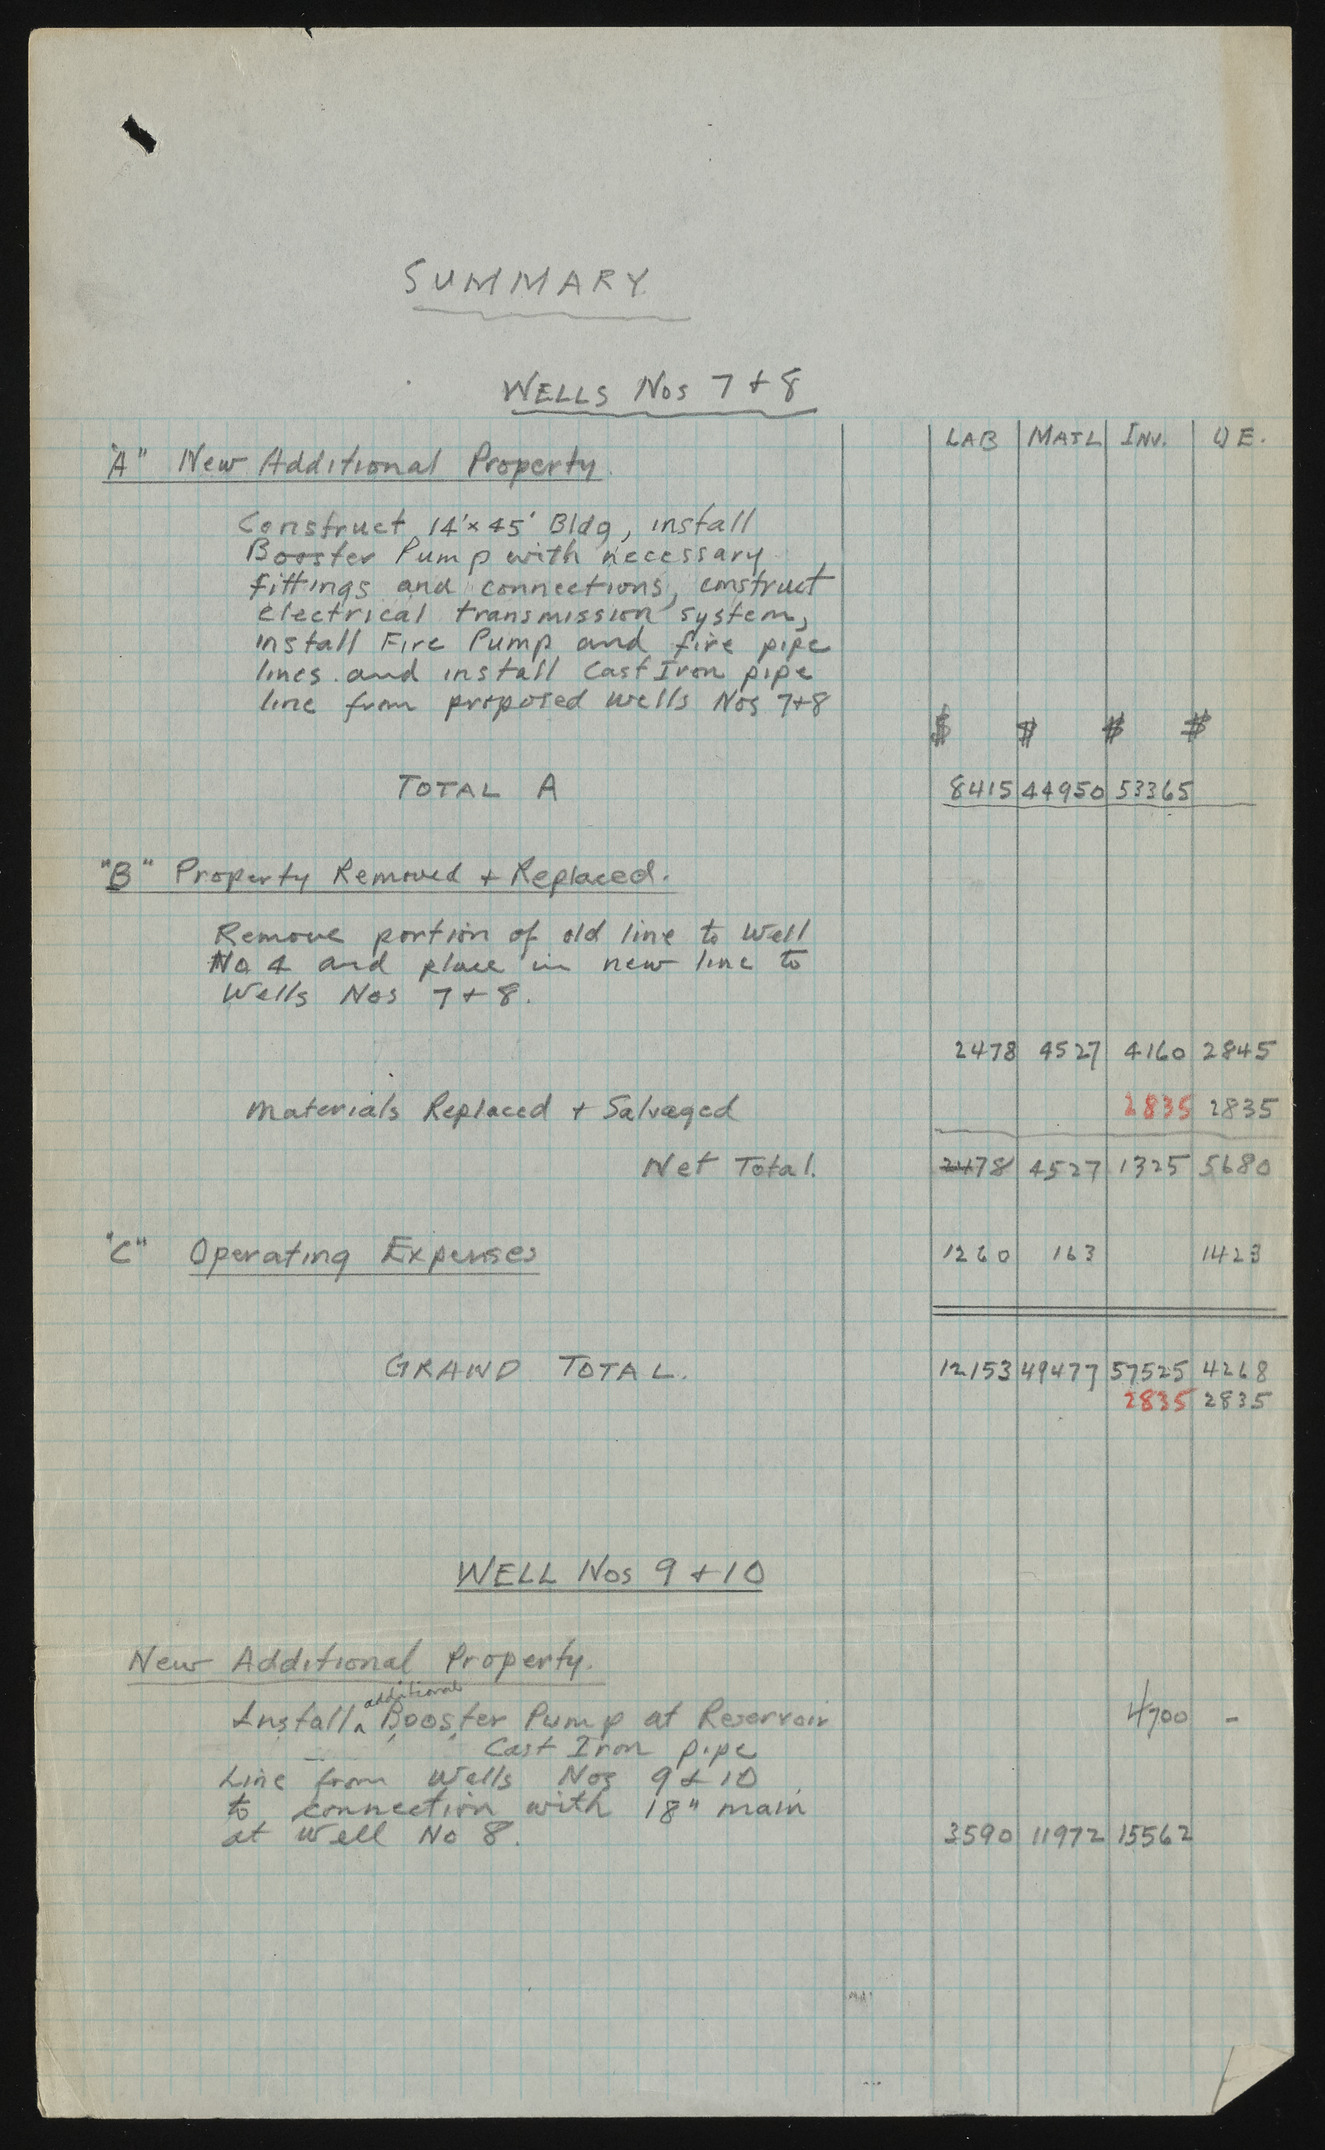 SUMMARY
WELLS Nos 7 + 8
LAB MATL INV. O E.
"A" New Additional Property.
Construct 14'x 45' Bldg, install
Booster Pump with necessary
fittings and connections, construct
electrical transmission system,
install Fire Pump and fire pipe
lines and install Cast Iron pipe
line from proposed wells Nos 7+8
$ $ $ $
TOTAL A 8415 44950 53365
"B" Property Removed + Replaced.
Remove portion of old line to Well
No 4 and place in new line to
Wells Nos 7 + 8.
2478 4527 4160 2845
Materials Replaced + Salvaged 2835 2835
Net Total. 2478 4527 1325 5680
"C" Operating Expenses 1260 163 1423
GRAND TOTAL. 12153 49477 57525 4268
2835 2835
WELL Nos 9 + 10
New Additional Property.
additional
Install Booster Pump at Reservoir 4700 -
Cast Iron pipe
Line from Wells Nos 9 & 10
to connection with 18" main
at Well No 8. 3590 11972 15562